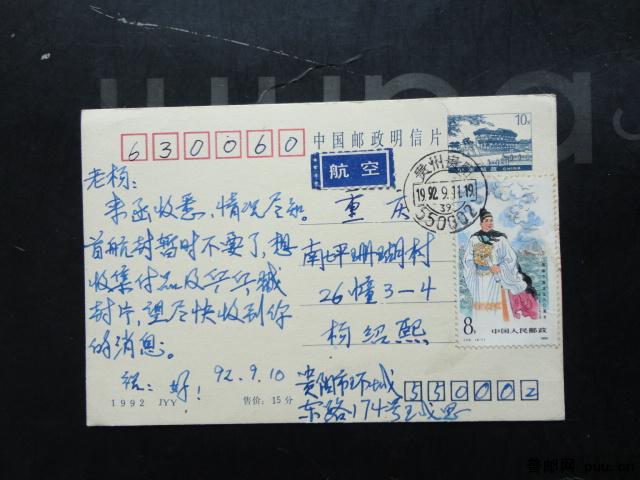 630060
中国邮政明信片
10分
航空
贵州贵阳
1992.9.11.19
39
550002
老杨:
来函收悉,情况尽知。
首航封暂时不要了,想
收集付品及乒乓球
封片,望尽快收到你
的消息。
祝:好!
92.9.10
重庆
南坪珊瑚村
26幢3-4
杨绍熙
贵阳市环城
东路174号
550002
8分
中国人民邮政
1992 JYY
售价:15分
普邮网 puu.cn